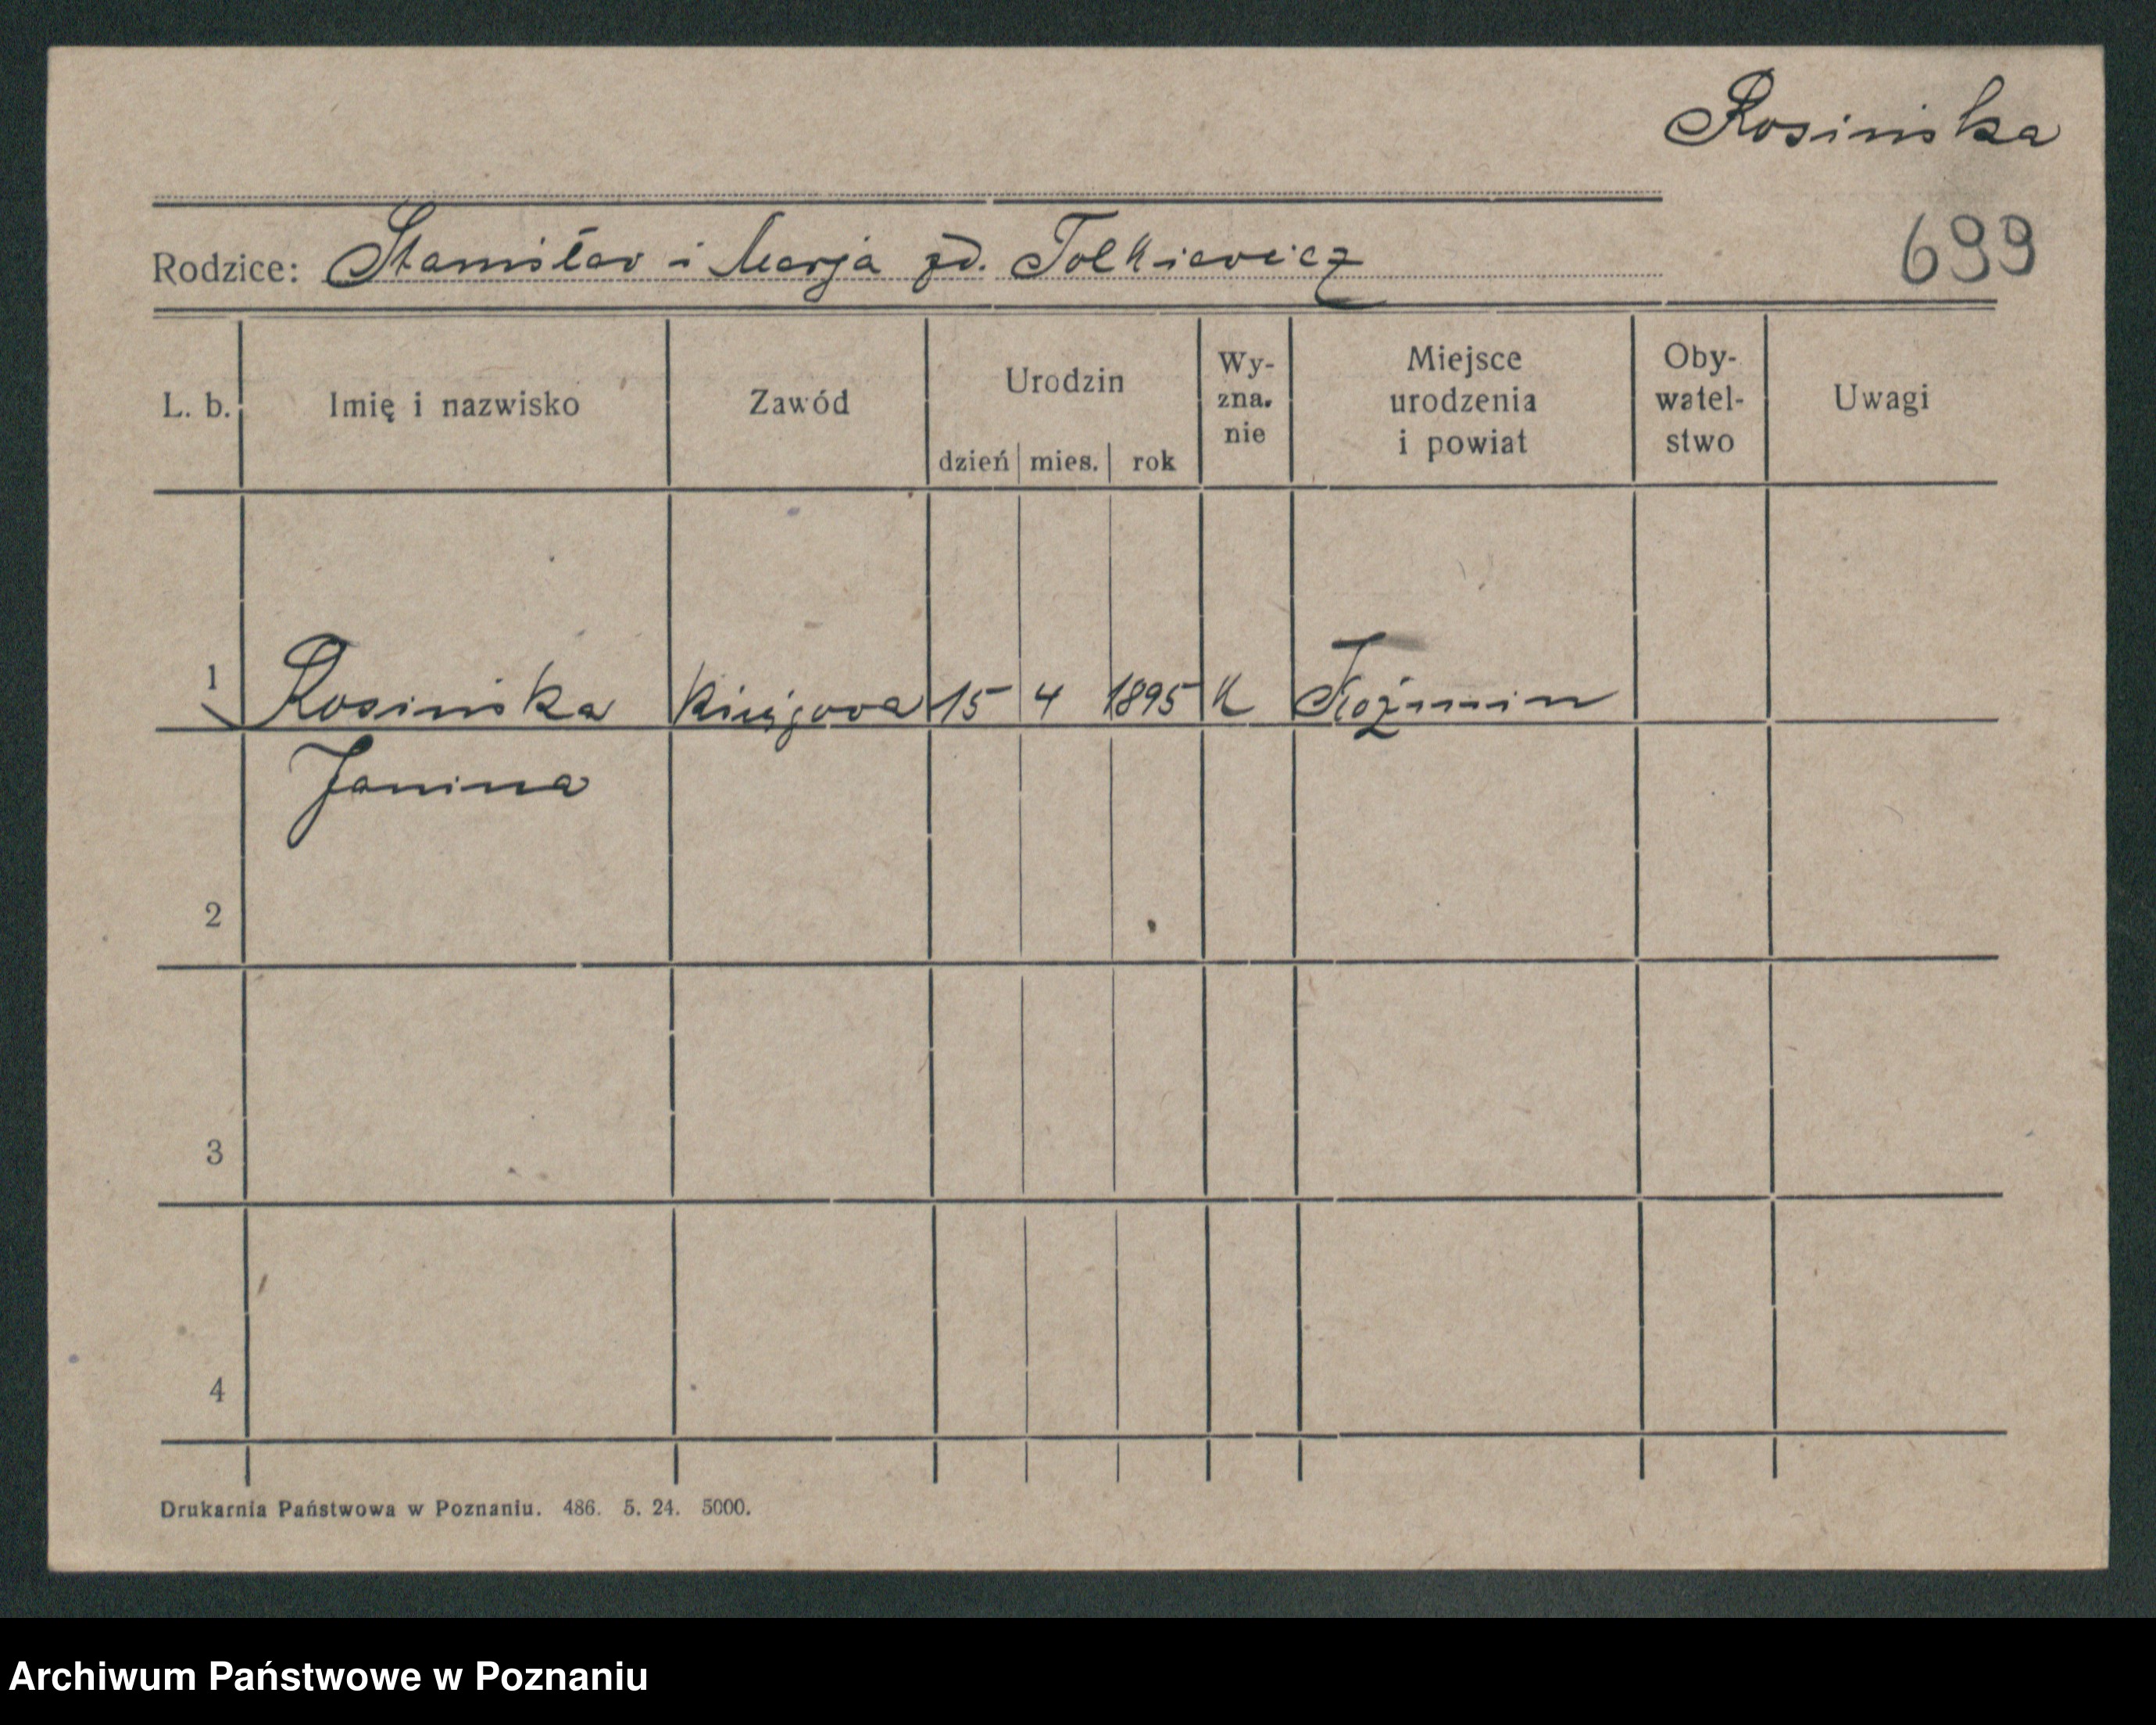 Rosińska
Rodzice: Stanisław i Marja zd. Tolkiewicz
699
L. b. Imię i nazwisko Zawód Urodzin dzień mies. rok Wy-zna-nie Miejsce urodzenia i powiat Oby-watel-stwo Uwagi
1 Rosińska 15 4 1895 K Koźmin
Janina
2
3
4
Drukarnia Państwowa w Poznaniu. 486. 5. 24. 5000.
Archiwum Państwowe w Poznaniu